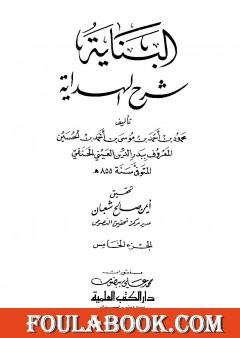 البناية
شرح الهداية
تأليف
محمود بن أحمد بن موسى بن أحمد بن الحسين
المعروف ببدر الدين العيني الحنفي
المتوفى سنة ٨٥٥ هـ
تحقيق
أيمن صالح شعبان
مدير مركز تحقيق النصوص
الجزء الخامس
منشورات
محمد علي بيضون
دار الكتب العلمية
FOULABOOK.COM